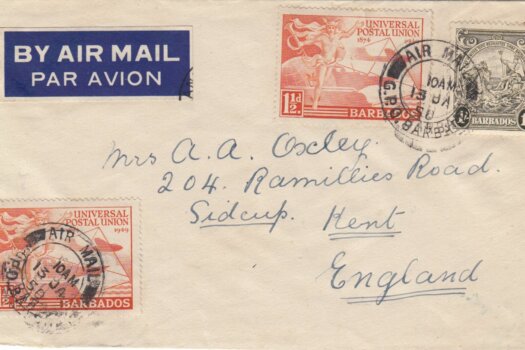 BY AIR MAIL
PAR AVION
UNIVERSAL
POSTAL UNION
1874 1949
1½d.
BARBADOS
AIR MAIL
10AM
13 JA
50
G.P.O. BARBADOS
BARBADOS
Mrs A. A. Oxley.
204. Ramillies Road.
Sidcup. Kent
England
UNIVERSAL
POSTAL UNION
1949
BARBADOS
AIR MAIL
10AM
13 JA
50